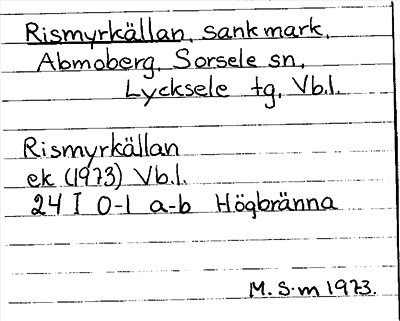 Rismyrkällan, sank mark,
Abmoberg, Sorsele sn,
Lycksele tg, Vb.l.
Rismyrkällan
ek (1973) Vb.l.
24 I 0-1 a-b Högbränna
M. S-m 1973.